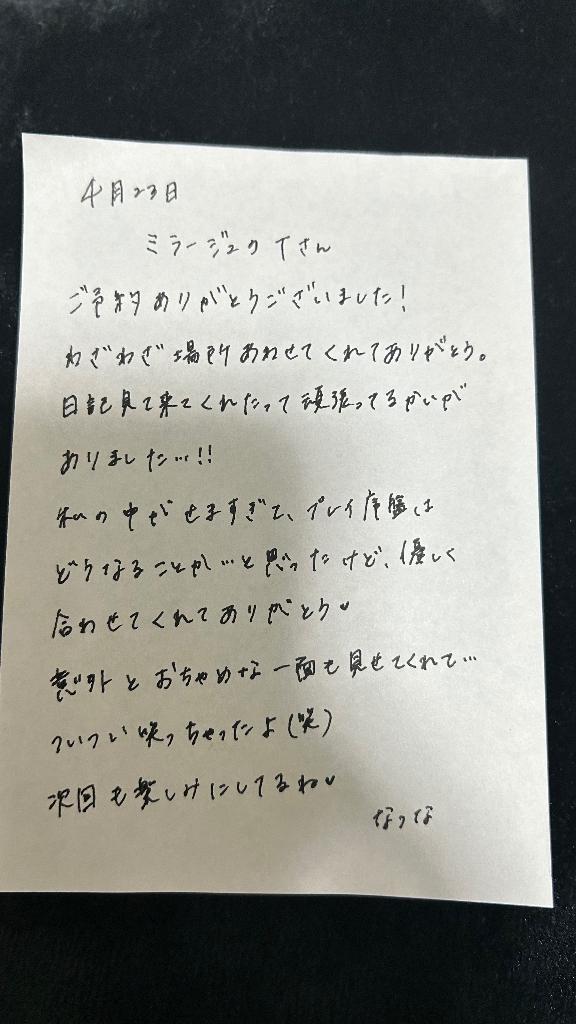 4月23日
ミラージュのTさん
ご予約ありがとうございました!
わざわざ場所あわせてくれてありがとう。
日記見て来てくれたって頑張ってるかいが
ありました…!!
私の中がせますぎて、プレイ序盤は
どうなることか…と思ったけど、優しく
合わせてくれてありがとう♥
意外とおちゃめな一面も見せてくれて…
ついつい笑っちゃったよ(笑)
次回も楽しみにしてるね♥
なつな